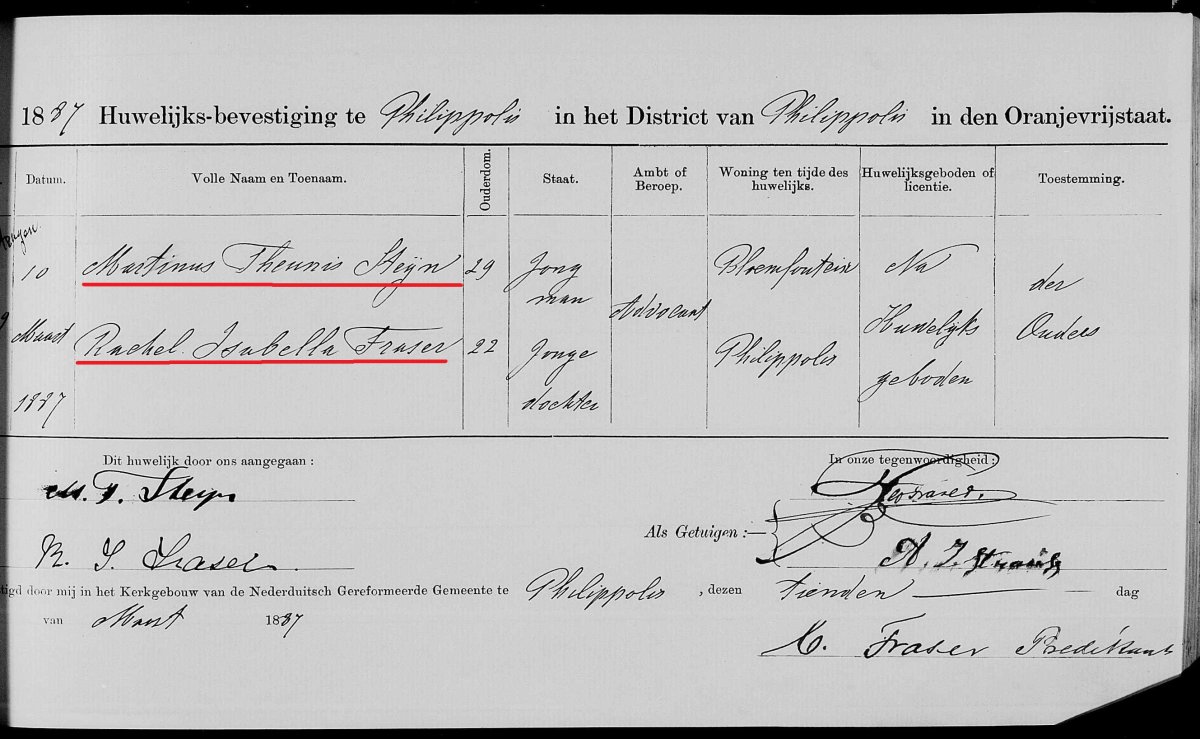 1887 Huwelijks-bevestiging te Philippolis in het District van Philippolis in den Oranjevrijstaat.
Datum. Volle Naam en Toenaam. Ouderdom. Staat. Ambt of Beroep. Woning ten tijde des huwelijks. Huwelijksgeboden of licentie. Toestemming.
10 Martinus Theunis Steyn 29 Jong man Advocaat Bloemfontein Na Huwelijks geboden der Ouders
Maart Rachel Isabella Fraser 22 Jonge dochter Philippolis
1887
Dit huwelijk door ons aangegaan : In onze tegenwoordigheid :
M. T. Steyn
Als Getuigen :—
R. I. Fraser
tigd door mij in het Kerkgebouw van de Nederduitsch Gereformeerde Gemeente te Philippolis , dezen tienden dag
van Maart 1887
C. Fraser Predikant